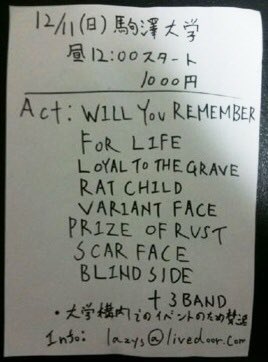 12/11(日)駒澤大学
昼12:00スタート
1000円
Act: WILL YOU REMEMBER
FOR LIFE
LOYAL TO THE GRAVE
RAT CHILD
VARIANT FACE
PRIZE OF RUST
SCAR FACE
BLIND SIDE
+3BAND
・大学構内でのイベントのため禁酒
Info: lazys@livedoor.com